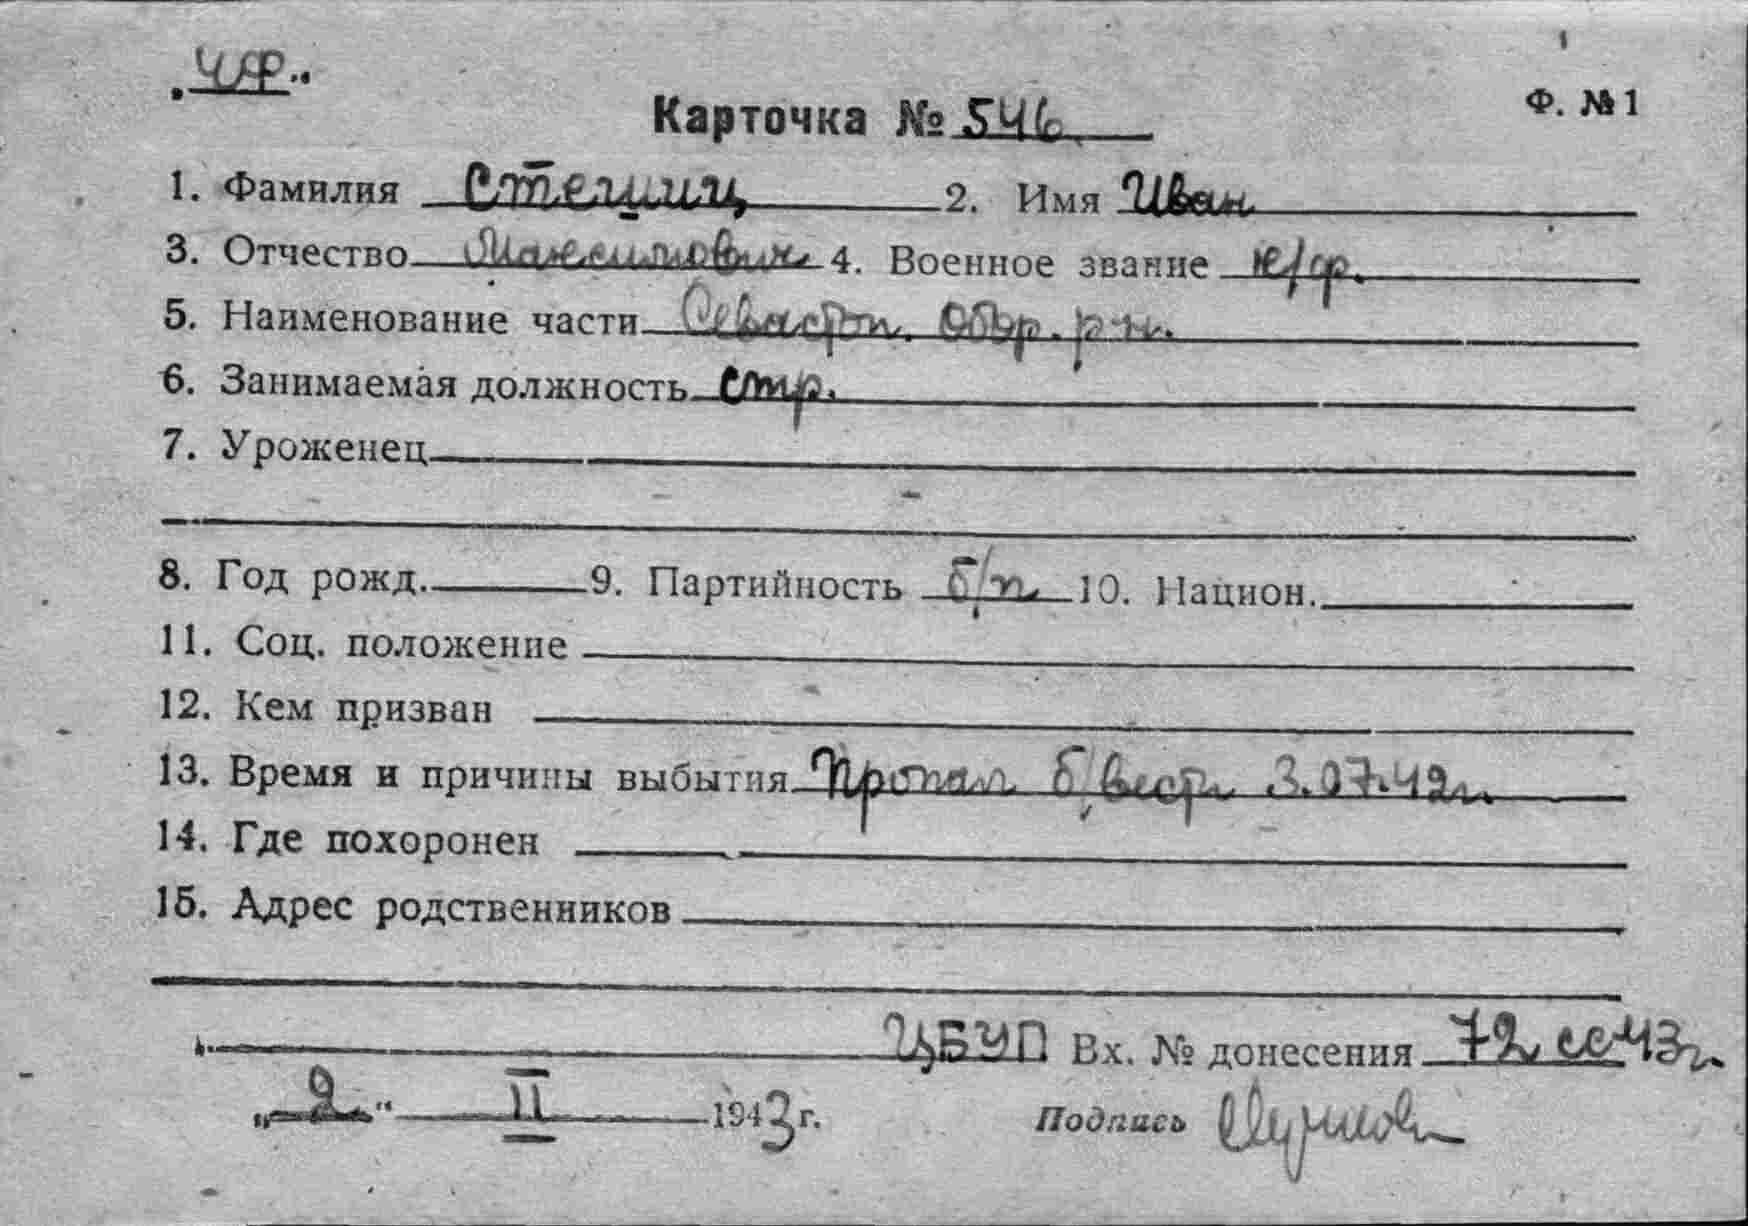 „ЧФ“
Карточка № 546 Ф. № 1
1. Фамилия Стешиц 2. Имя Иван
3. Отчество Максимович 4. Военное звание к/ф.
5. Наименование части Севастоп. Обор. р-н.
6. Занимаемая должность стр.
7. Уроженец
8. Год рожд. 9. Партийность б/п 10. Национ.
11. Соц. положение
12. Кем призван
13. Время и причины выбытия Пропал б/вести 3.07.42г.
14. Где похоронен
15. Адрес родственников
ЦБУП Вх. № донесения 72сс 43г.
„2“ II 1943 г. Подпись